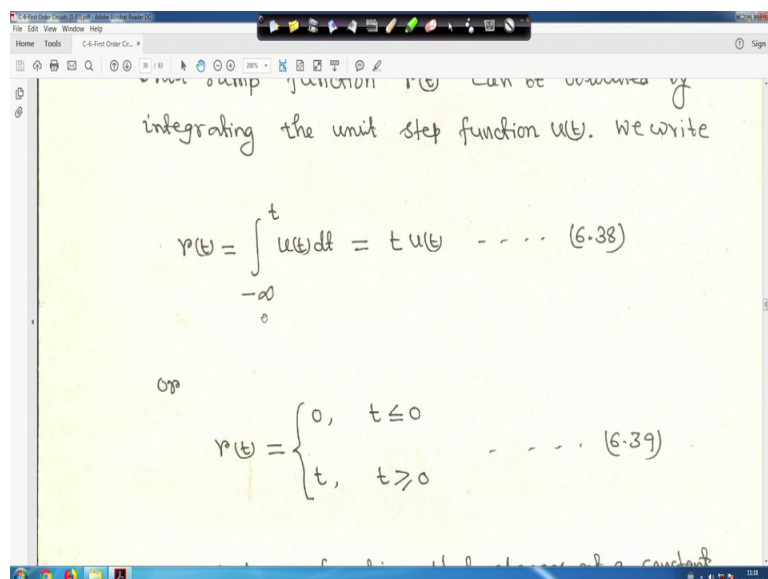 C-6-First Order Circuits (1-83).pdf - Adobe Acrobat Reader DC
File Edit View Window Help
Home Tools C-6-First Order Cir... × Sign
39 / 83 200%
function r(t) can be obtained by
integrating the unit step function u(t). We write
r(t) = ∫_{-∞}^{t} u(t) dt = t u(t) - - - - (6.38)
or
r(t) = { 0, t ≤ 0
t, t ≥ 0 - - - - (6.39)
of a constant
11:18